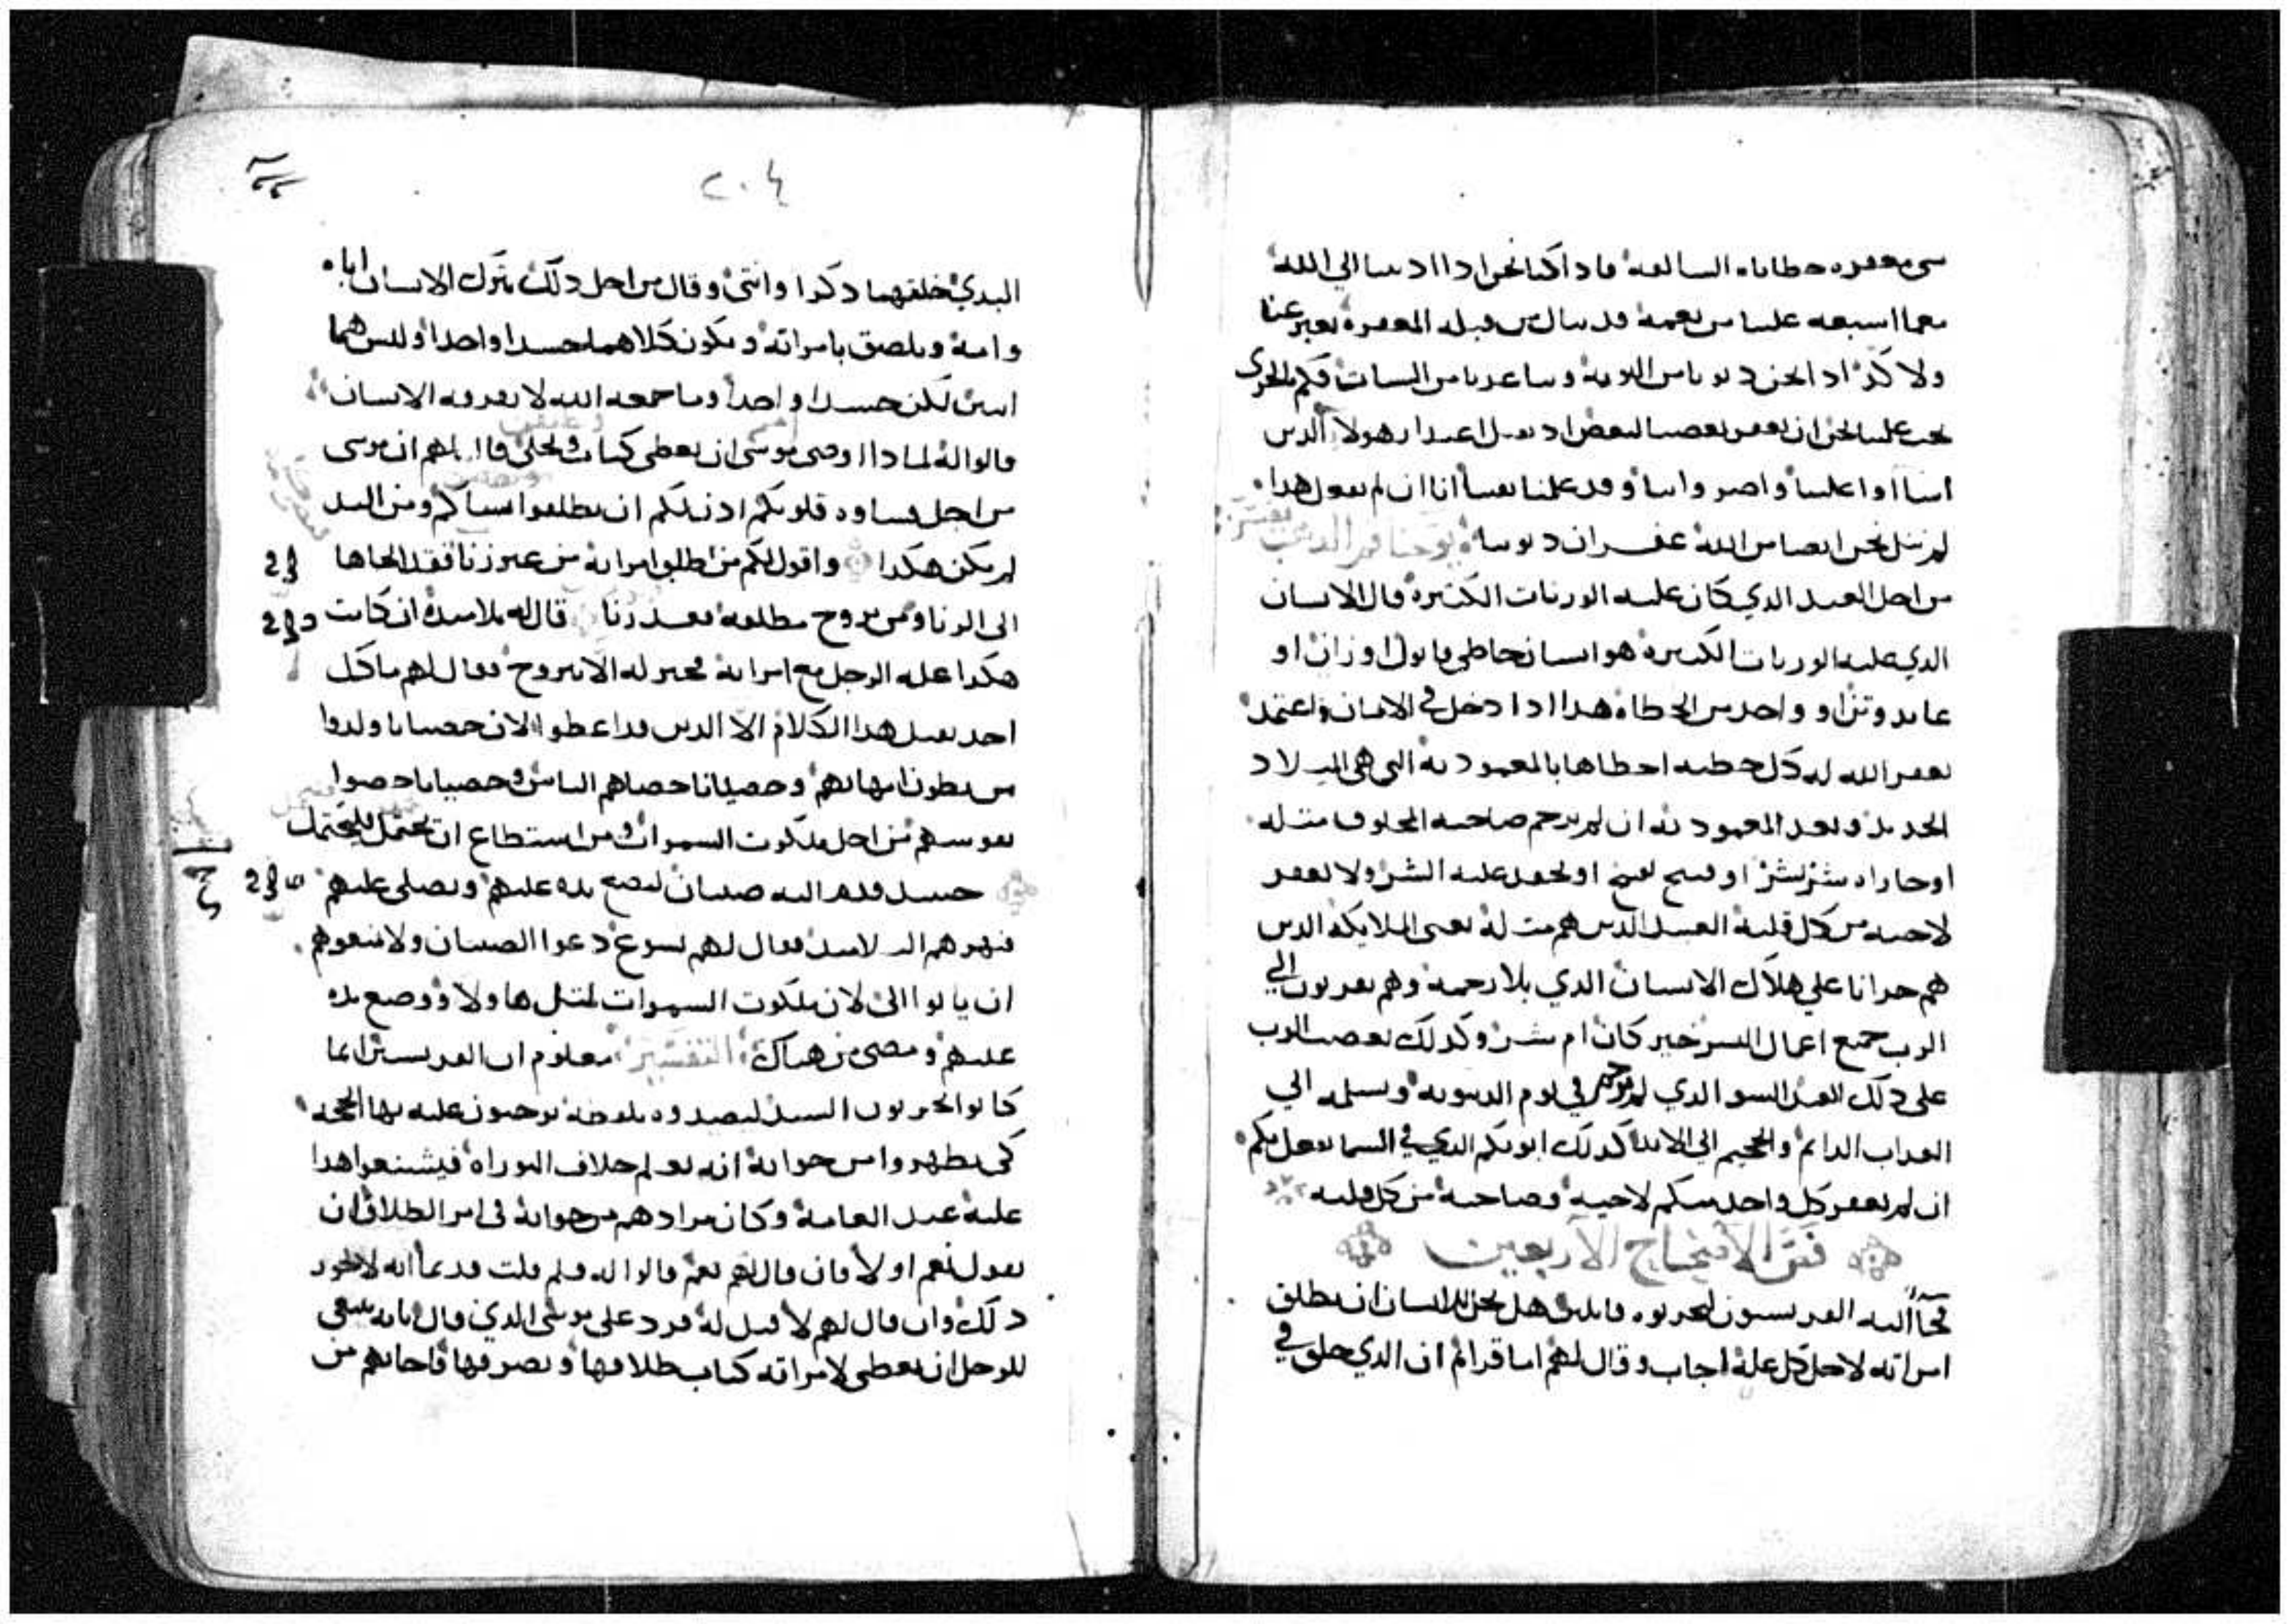 سى مغفره خطاياه السالفه فاذا كنا نحن اذا ادنبنا الي الله
بما اسبغه علينا من نعمه قد ننال من قبله المغفره بغير عنا
ولا كد اذا نحن دنونا من التوبه وتباعدنا من السيات فكم بالحرى
يجب علينا نحن ان يغفر بعضنا لبعض اذ نقبل اعتذار هولا الدين
اساا وا علينا واضروا بنا وقد علمنا يقينا اننا ان لم نفعل هدا
لم ننل نحن ايضا من الله غفران دنوبنا يوحنا فم الدهب يفسر
من اجل العبد الدي كان عليه الوزنات الكتيره قال الانسان
الدي عليه الوزنات الكتيره هو انسان خاطي قاتول او زان او
عابد وتن او واحد من الخطاه هدا ادا دخل في الامان واعتمد
يغفر الله له كل خطيه اخطاها بالمعموديه التى هى الميلاد
الجديد وبعد المعموديه ان لم يرحم صاحبه المخلوف متله
او جازاه شر بشر او قبيح بقبيح او يحقد عليه الشر ولا يغفر
لاخيه من كل قلبه العبيد الدين هم متله يعنى الملايكه الدين
هم حزانا على هلاك الانسان الدي بلا رحمه وهم يقربون الي
الرب جميع اعمال البشر خير كان ام شر وكدلك يغضب الرب
على دلك العبد السو الدي لم يرحم في يوم الدينونه ويسلمه الي
العداب الدايم والجحيم الي الابد كدلك ابوكم الدي في السما يفعل بكم
ان لم يغفر كل واحد منكم لاخيه وصاحبه من كل قلبه
فص الاصحاح الاربعين
فجاا اليه الفريسيون ليجربوه قايلين هل يحل للانسان ان يطلق
امراته لاجل كل عله اجاب وقال لهم اما قراتم ان الدي خلق في
٢٠٤
البدي خلقهما دكرا وانتى وقال من اجل دلك يترك الانسان اباه
وامه ويلصق بامراته ويكون كلاهما جسدا واحدا وليس هما
اتنين لكن جسدا واحدا وما جمعه الله لا يفرقه الانسان
قالوا له لمادا اوصى موسى ان يعطى كتاب وتخلى قال لهم ان موسى
من اجل قساوه قلوبكم ادن لكم ان تطلقوا نساكم ومن البد
لم يكن هكدا واقول لكم من طلق امراته من غير زنا فقد الجاها
الى الزنا ومن تزوج مطلقه فقد زنا قال له تلاميده ان كانت
هكدا عله الرجل مع امراته فخير له الا يتزوج فقال لهم ما كل
احد يقبل هدا الكلام الا الدين قد اعطوا لان خصيانا ولدوا
من بطون امهاتهم وخصيانا خصاهم الناس وخصيانا خصوا
نفوسهم من اجل ملكوت السموات ومن استطاع ان يحتمل فليحتمل
حينيد قدم اليه صبيان ليضع يده عليهم ويصلى عليهم
فنهرهم التلاميد فقال لهم يسوع دعوا الصبيان ولا تمنعوهم
ان ياتوا الى لان ملكوت السموات لمتل هاولا ووضع يده
عليهم ومضى من هناك التفسير معلوم ان الفريسيين انما
كانوا يجربون السيد ليصيدوه بلفظه يوجبون عليه بها الحجه
كى يظهروا من جوابه انه يعلم خلاف التوراه فيشنعوا هدا
عليه عند العامه وكان مرادهم من جوابه فى امر الطلاق ان
يقول نعم او لا فان قال لهم نعم قالوا له فلم قلت قديما انه لا يجوز
دلك وان قال لهم لا قيل له فرد على موسى الدي قال بانه ينبغى
للرجل ان يعطى لامراته كتاب طلاقها ويصرفها فاجابهم من